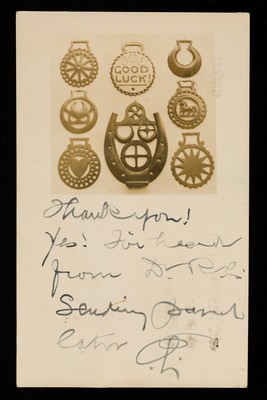 GOOD
LUCK!
Thank you!
Yes! I've heard
from Dr
Sending parcel
later